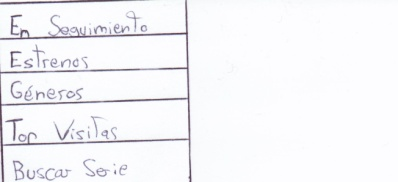 En Seguimiento
Estrenos
Géneros
Top Visitas
Buscar Serie